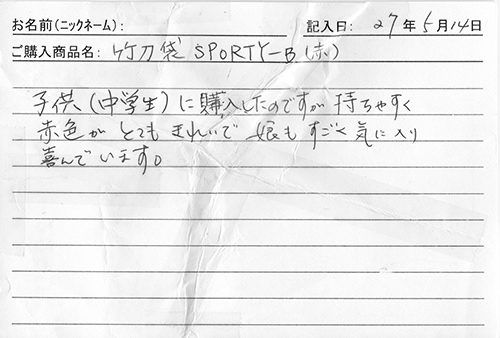 お名前(ニックネーム): 記入日: 27年5月14日
ご購入商品名: 竹刀袋 SPORTY-B (赤)
子供(中学生)に購入したのですが 持ちやすく
赤色が とても きれいで 娘も すごく 気に入り
喜んでいます。